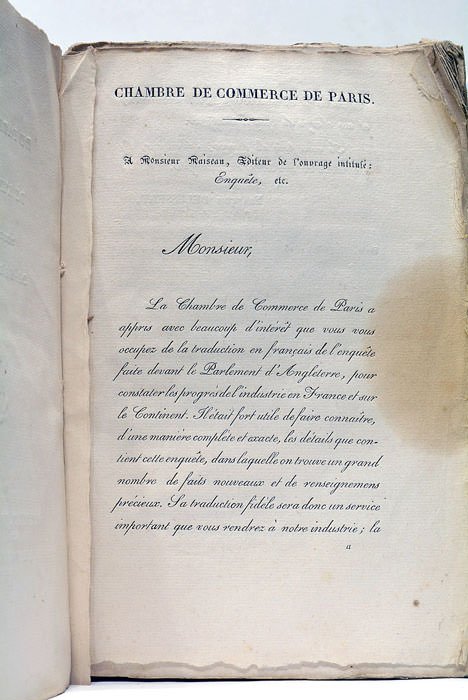 CHAMBRE DE COMMERCE DE PARIS.
A Monsieur Maiseau, Editeur de l'ouvrage intitulé:
Enquête, etc.
Monsieur,
La Chambre de Commerce de Paris a
appris avec beaucoup d'intérêt que vous vous
occupez de la traduction en français de l'enquête
faite devant le Parlement d'Angleterre, pour
constater les progrès de l'industrie en France et sur
le Continent. Il était fort utile de faire connaître,
d'une manière complète et exacte, les détails que con-
tient cette enquête, dans laquelle on trouve un grand
nombre de faits nouveaux et de renseignemens
précieux. Sa traduction fidèle sera donc un service
important que vous rendrez à notre industrie; la
a